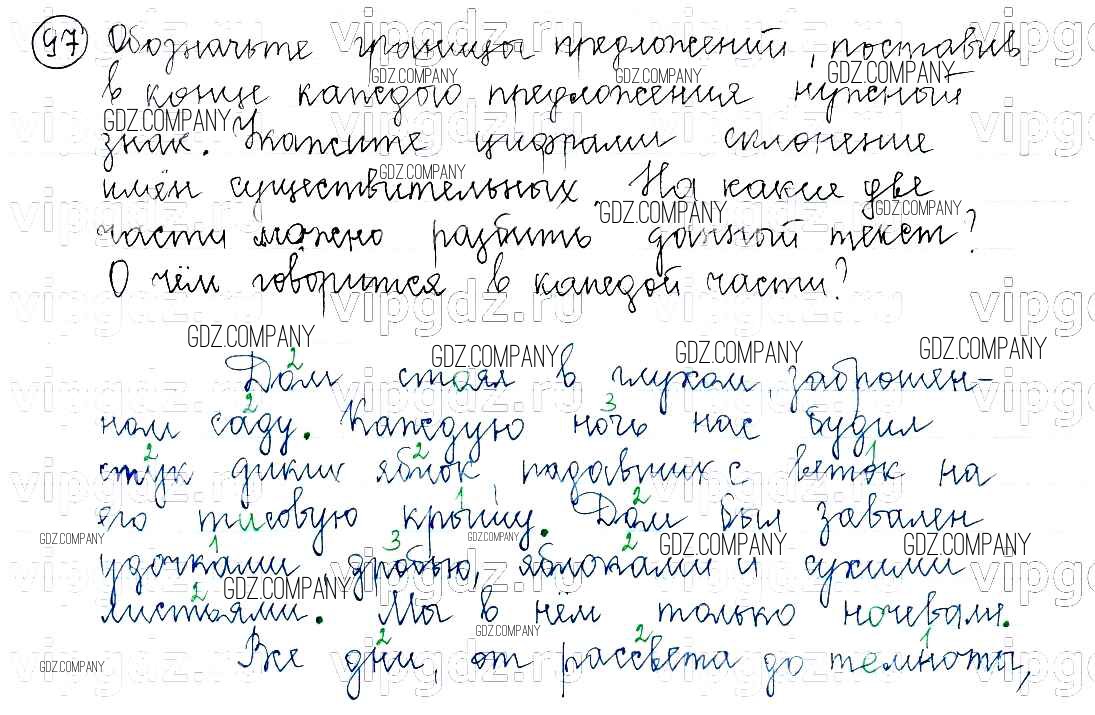 97 Обозначьте границы предложений, поставив
в конце каждого предложения нужный
знак. Укажите цифрами склонение
имён существительных. На какие две
части можно разбить данный текст?
О чём говорится в каждой части?
Дом стоял в глухом, заброшен-
2
ном саду. Каждую ночь нас будил
2 3
стук диких яблок, падавших с веток на
2 2 1
его тисовую крышу. Дом был завален
1 2
удочками, дробью, яблоками и сухими
1 3 2
листьями. Мы в нём только ночевали.
2
Все дни, от рассвета до темноты,
2 2 1
GDZ.COMPANY
vipgdz.ru